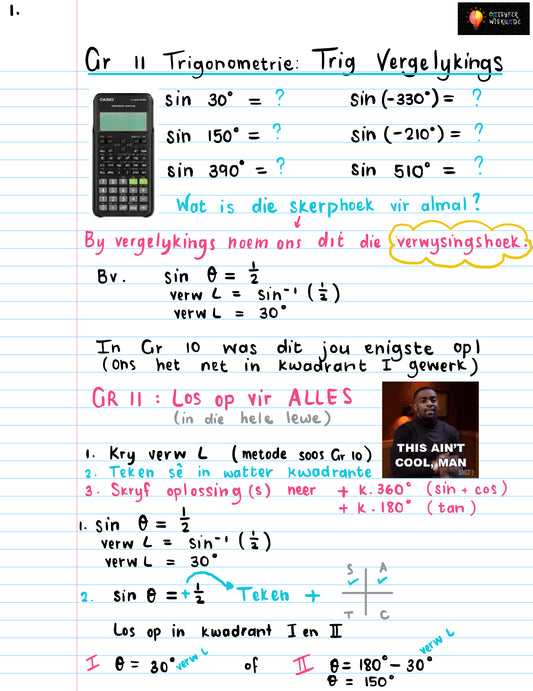 1.
ONTSYFER
WISKUNDE
Gr 11 Trigonometrie: Trig Vergelykings
CASIO
sin 30° = ?
sin (-330°) = ?
sin 150° = ?
sin (-210°) = ?
sin 390° = ?
sin 510° = ?
Wat is die skerphoek vir almal?
By vergelykings noem ons dit die verwysingshoek.
Bv. sin θ = 1/2
verw ∠ = sin⁻¹ (1/2)
verw ∠ = 30°
In Gr 10 was dit jou enigste opl
(Ons het net in kwadrant I gewerk)
GR 11 : Los op vir ALLES
(in die hele lewe)
THIS AIN'T
COOL, MAN
BET
1. Kry verw ∠ (metode soos Gr 10)
2. Teken sê in watter kwadrante
3. Skryf oplossing(s) neer + k.360° (sin + cos)
+ k.180° (tan)
1. sin θ = 1/2
verw ∠ = sin⁻¹ (1/2)
verw ∠ = 30°
2. sin θ = + 1/2 Teken +
S A
T C
Los op in kwadrant I en II
I θ = 30° verw ∠ of II θ = 180° - 30° verw ∠
θ = 150°